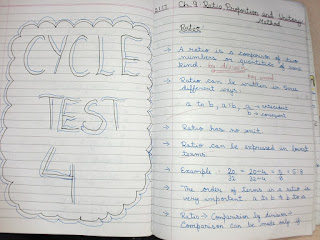 CYCLE
TEST
4
Ch. 9 Ratio, Proportion and Unitary
Method
Ratio
→ A ratio is a comparison of two
numbers or quantities of same
kind. by division
→ Ratio can be written in three
different ways.
a to b, a:b, a/b → antecedent → consequent
→ Ratio has no unit.
→ Ratio can be expressed in lowest
terms.
→ Example: 20/32 = 20÷4/32÷4 = 5/8 = 5:8
→ The order of terms in a ratio is
very important a to b ≠ b to a
→ Ratio → Comparison by division
Comparison can be made only if